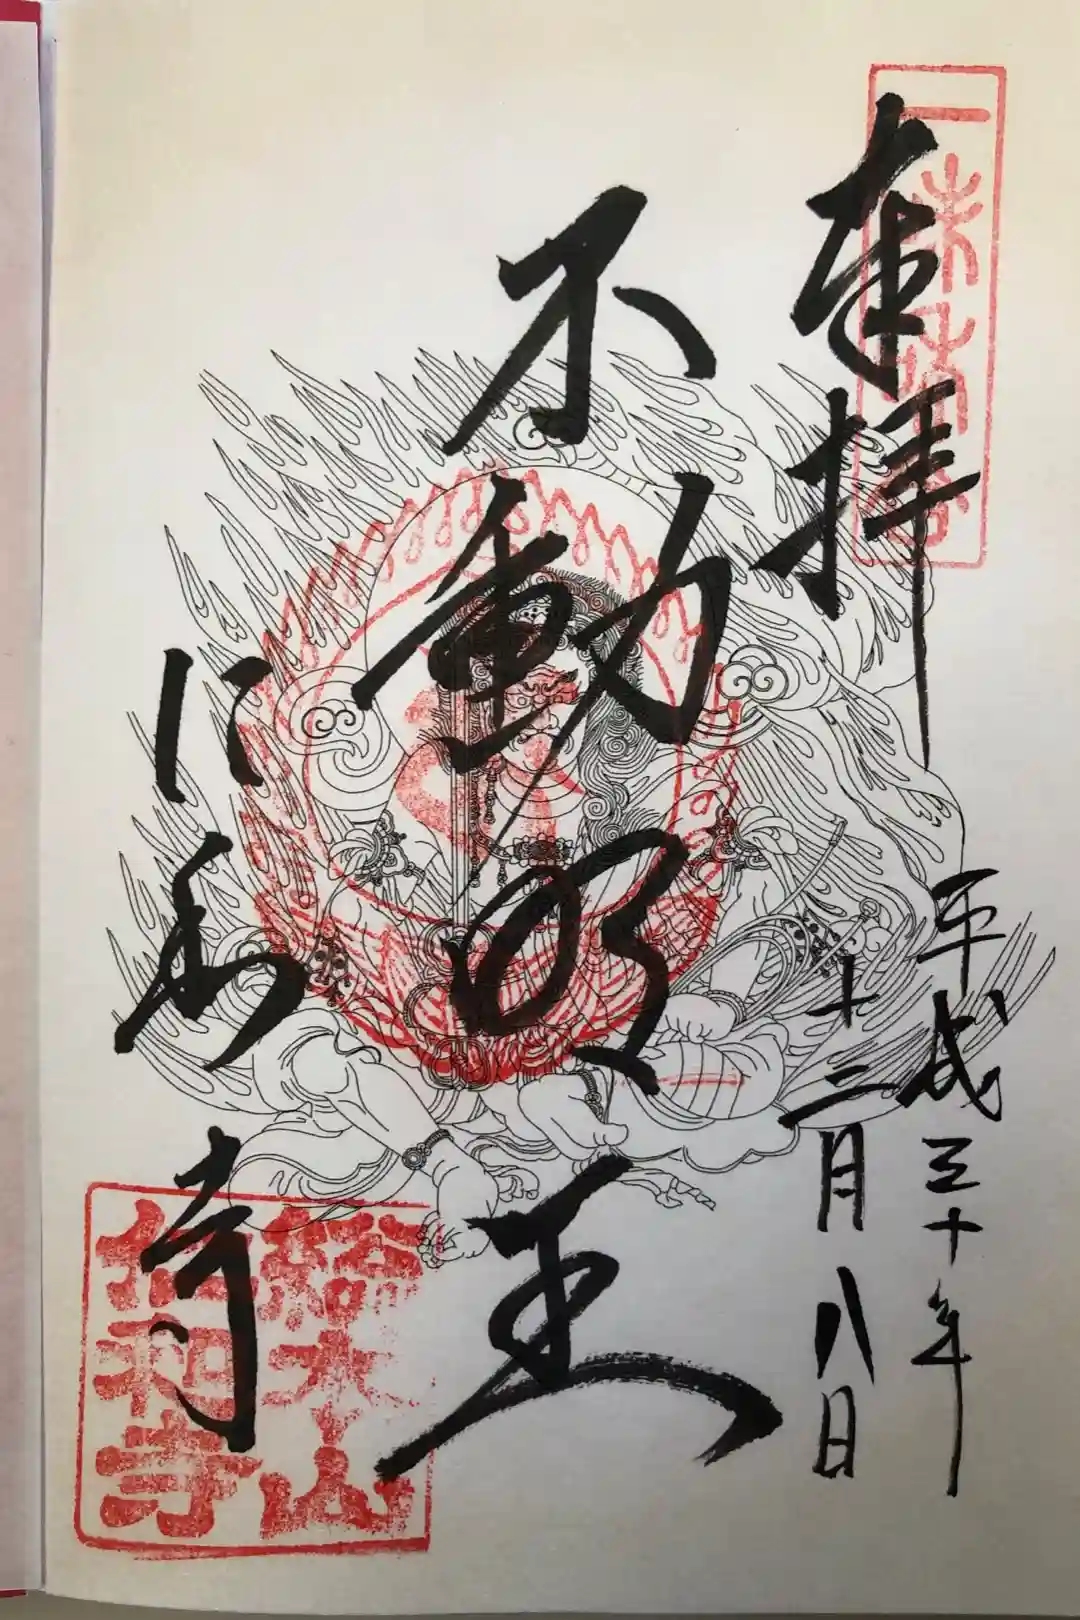 奉拝
平成三十年
十二月八日
不動明王
仁和寺
総本山
仁和寺